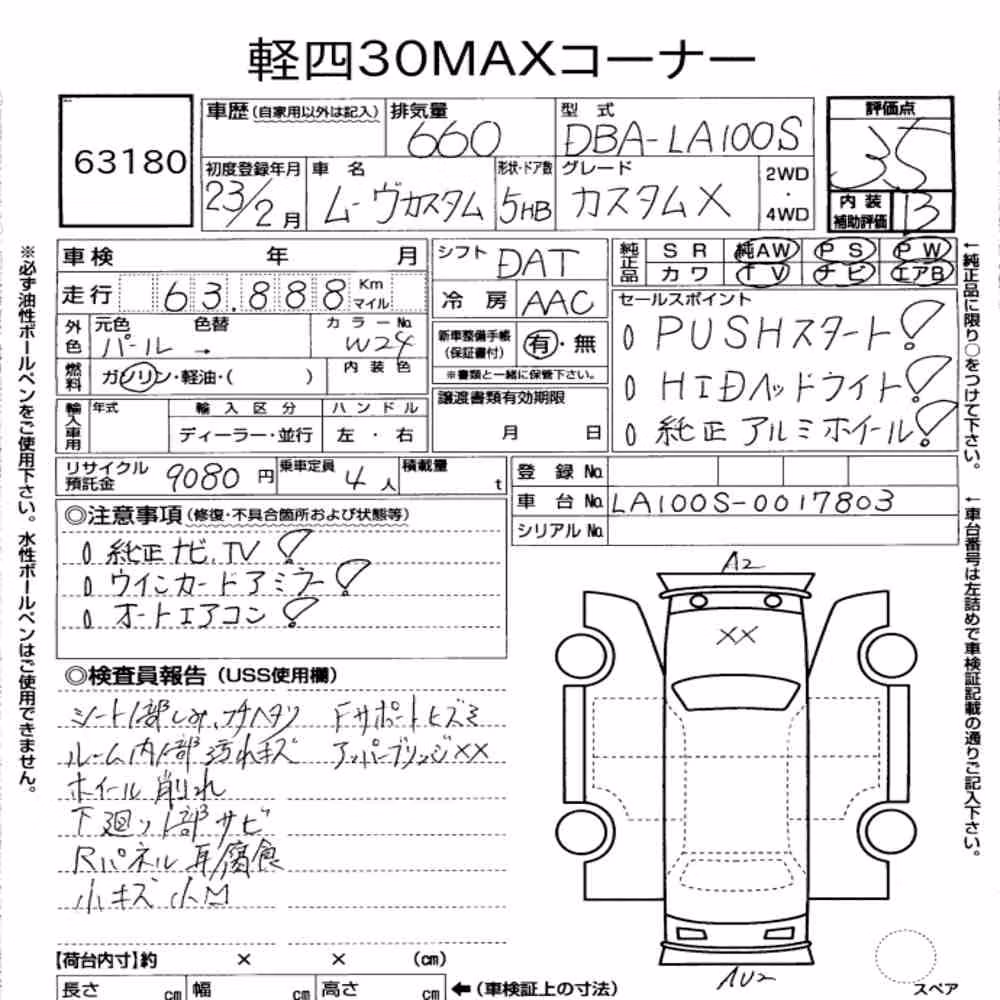 軽四30MAXコーナー
63180
車歴(自家用以外は記入)
排気量
660
型式
DBA-LA100S
評価点
3.5
初度登録年月
23/2月
車名
ムーヴカスタム
形状・ドア数
5HB
グレード
カスタムX
2WD
・
4WD
内装
補助評価
B
車検 年 月
走行 63.888 Km
マイル
外色
元色 色替
パール →
カラーNo.
W24
燃料
ガソリン・軽油・( )
内装色
輸入車用
年式
輸入区分
ハンドル
ディーラー・並行
左・右
シフト DAT
冷房 AAC
新車整備手帳
(保証書付)
有・無
※書類と一緒に保管下さい。
譲渡書類有効期限
月 日
純正品
SR 純AW PS PW
カワ TV ナビ エアB
セールスポイント
PUSHスタート!
HIDヘッドライト!
純正アルミホイール!
リサイクル
預託金
9080円
乗車定員
4人
積載量
t
登録No.
車台No. LA100S-0017803
シリアルNo.
◎注意事項(修復・不具合箇所および状態等)
純正ナビ.TV!
ウインカードアミラー!
オートエアコン!
◎検査員報告(USS使用欄)
シート1部しみ、プチヘタリ Fサポートヒズミ
ルーム内1部汚れキズ アッパーブリッジXX
ホイール削れ
下廻り1部サビ
Rパネル耳腐食
小キズ小M
A2
XX
AU2
スペア
【荷台内寸】約 × × (cm)
長さ cm 幅 cm 高さ cm ←(車検証上の寸法)
※必ず油性ボールペンをご使用下さい。水性ボールペンはご使用できません。
←純正品に限り○をつけて下さい。
←車台番号は左詰めで車検証記載の通りご記入下さい。